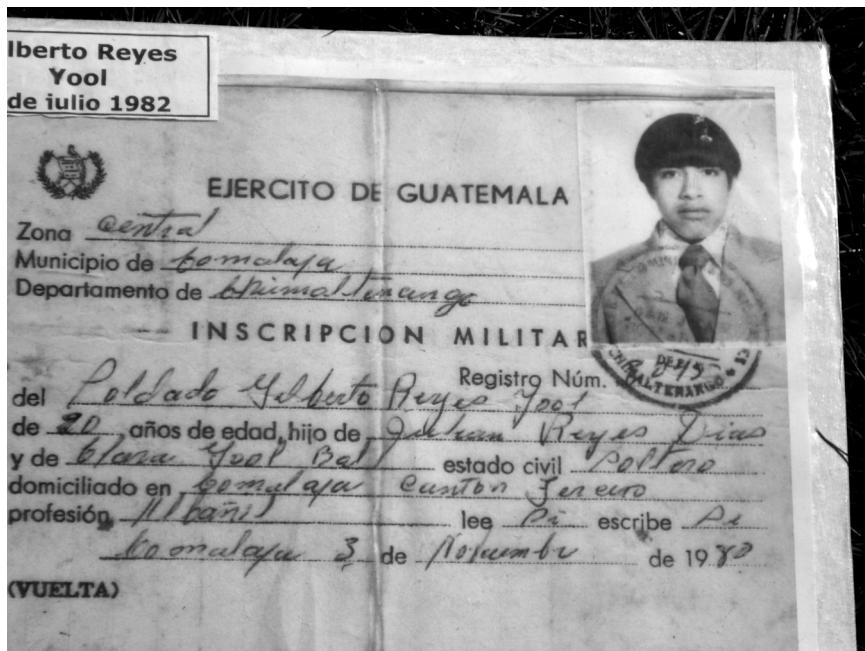 lberto Reyes
Yool
de julio 1982
EJERCITO DE GUATEMALA
Zona Central
Municipio de Comalapa
Departamento de Chimaltenango
INSCRIPCION MILITAR
Registro Núm.
del Soldado Gilberto Reyes Yool
de 20 años de edad, hijo de Julian Reyes Dias
y de Clara Yool Bal estado civil Soltero
domiciliado en Comalapa Canton Tercero
profesión Albañil lee Si escribe Si
Comalapa 3 de Noviembre de 1980
(VUELTA)
CHIMALTENANGO